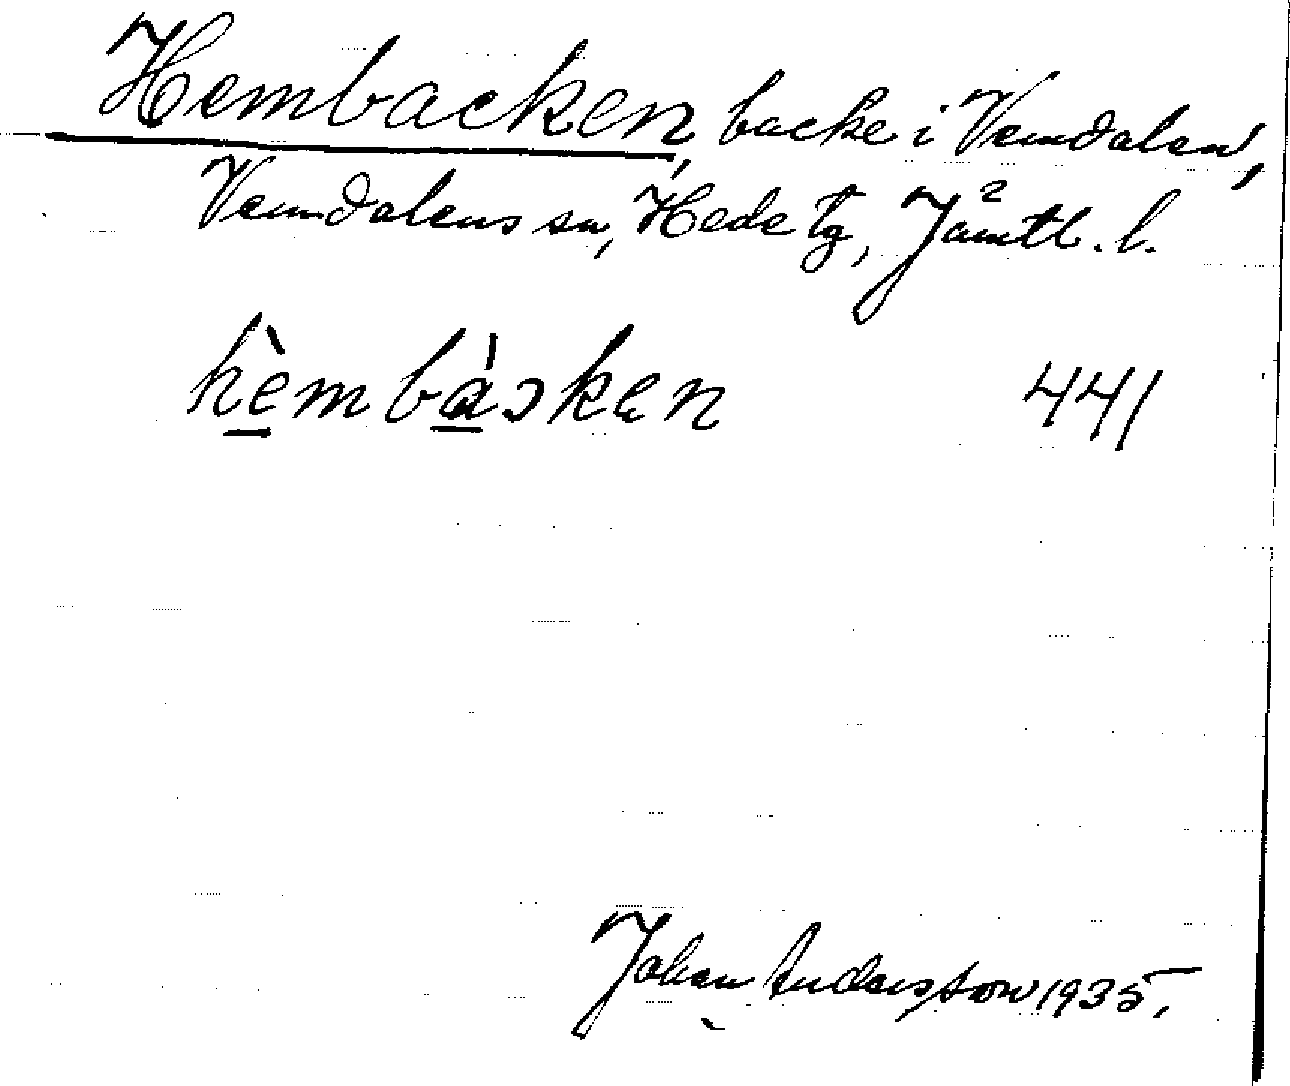 Hembacken, backe i Vemdalen,
Vemdalens sn, Hede tg, Jämtl. l.
hèmbàɔken 441
Johan Andersson 1935.